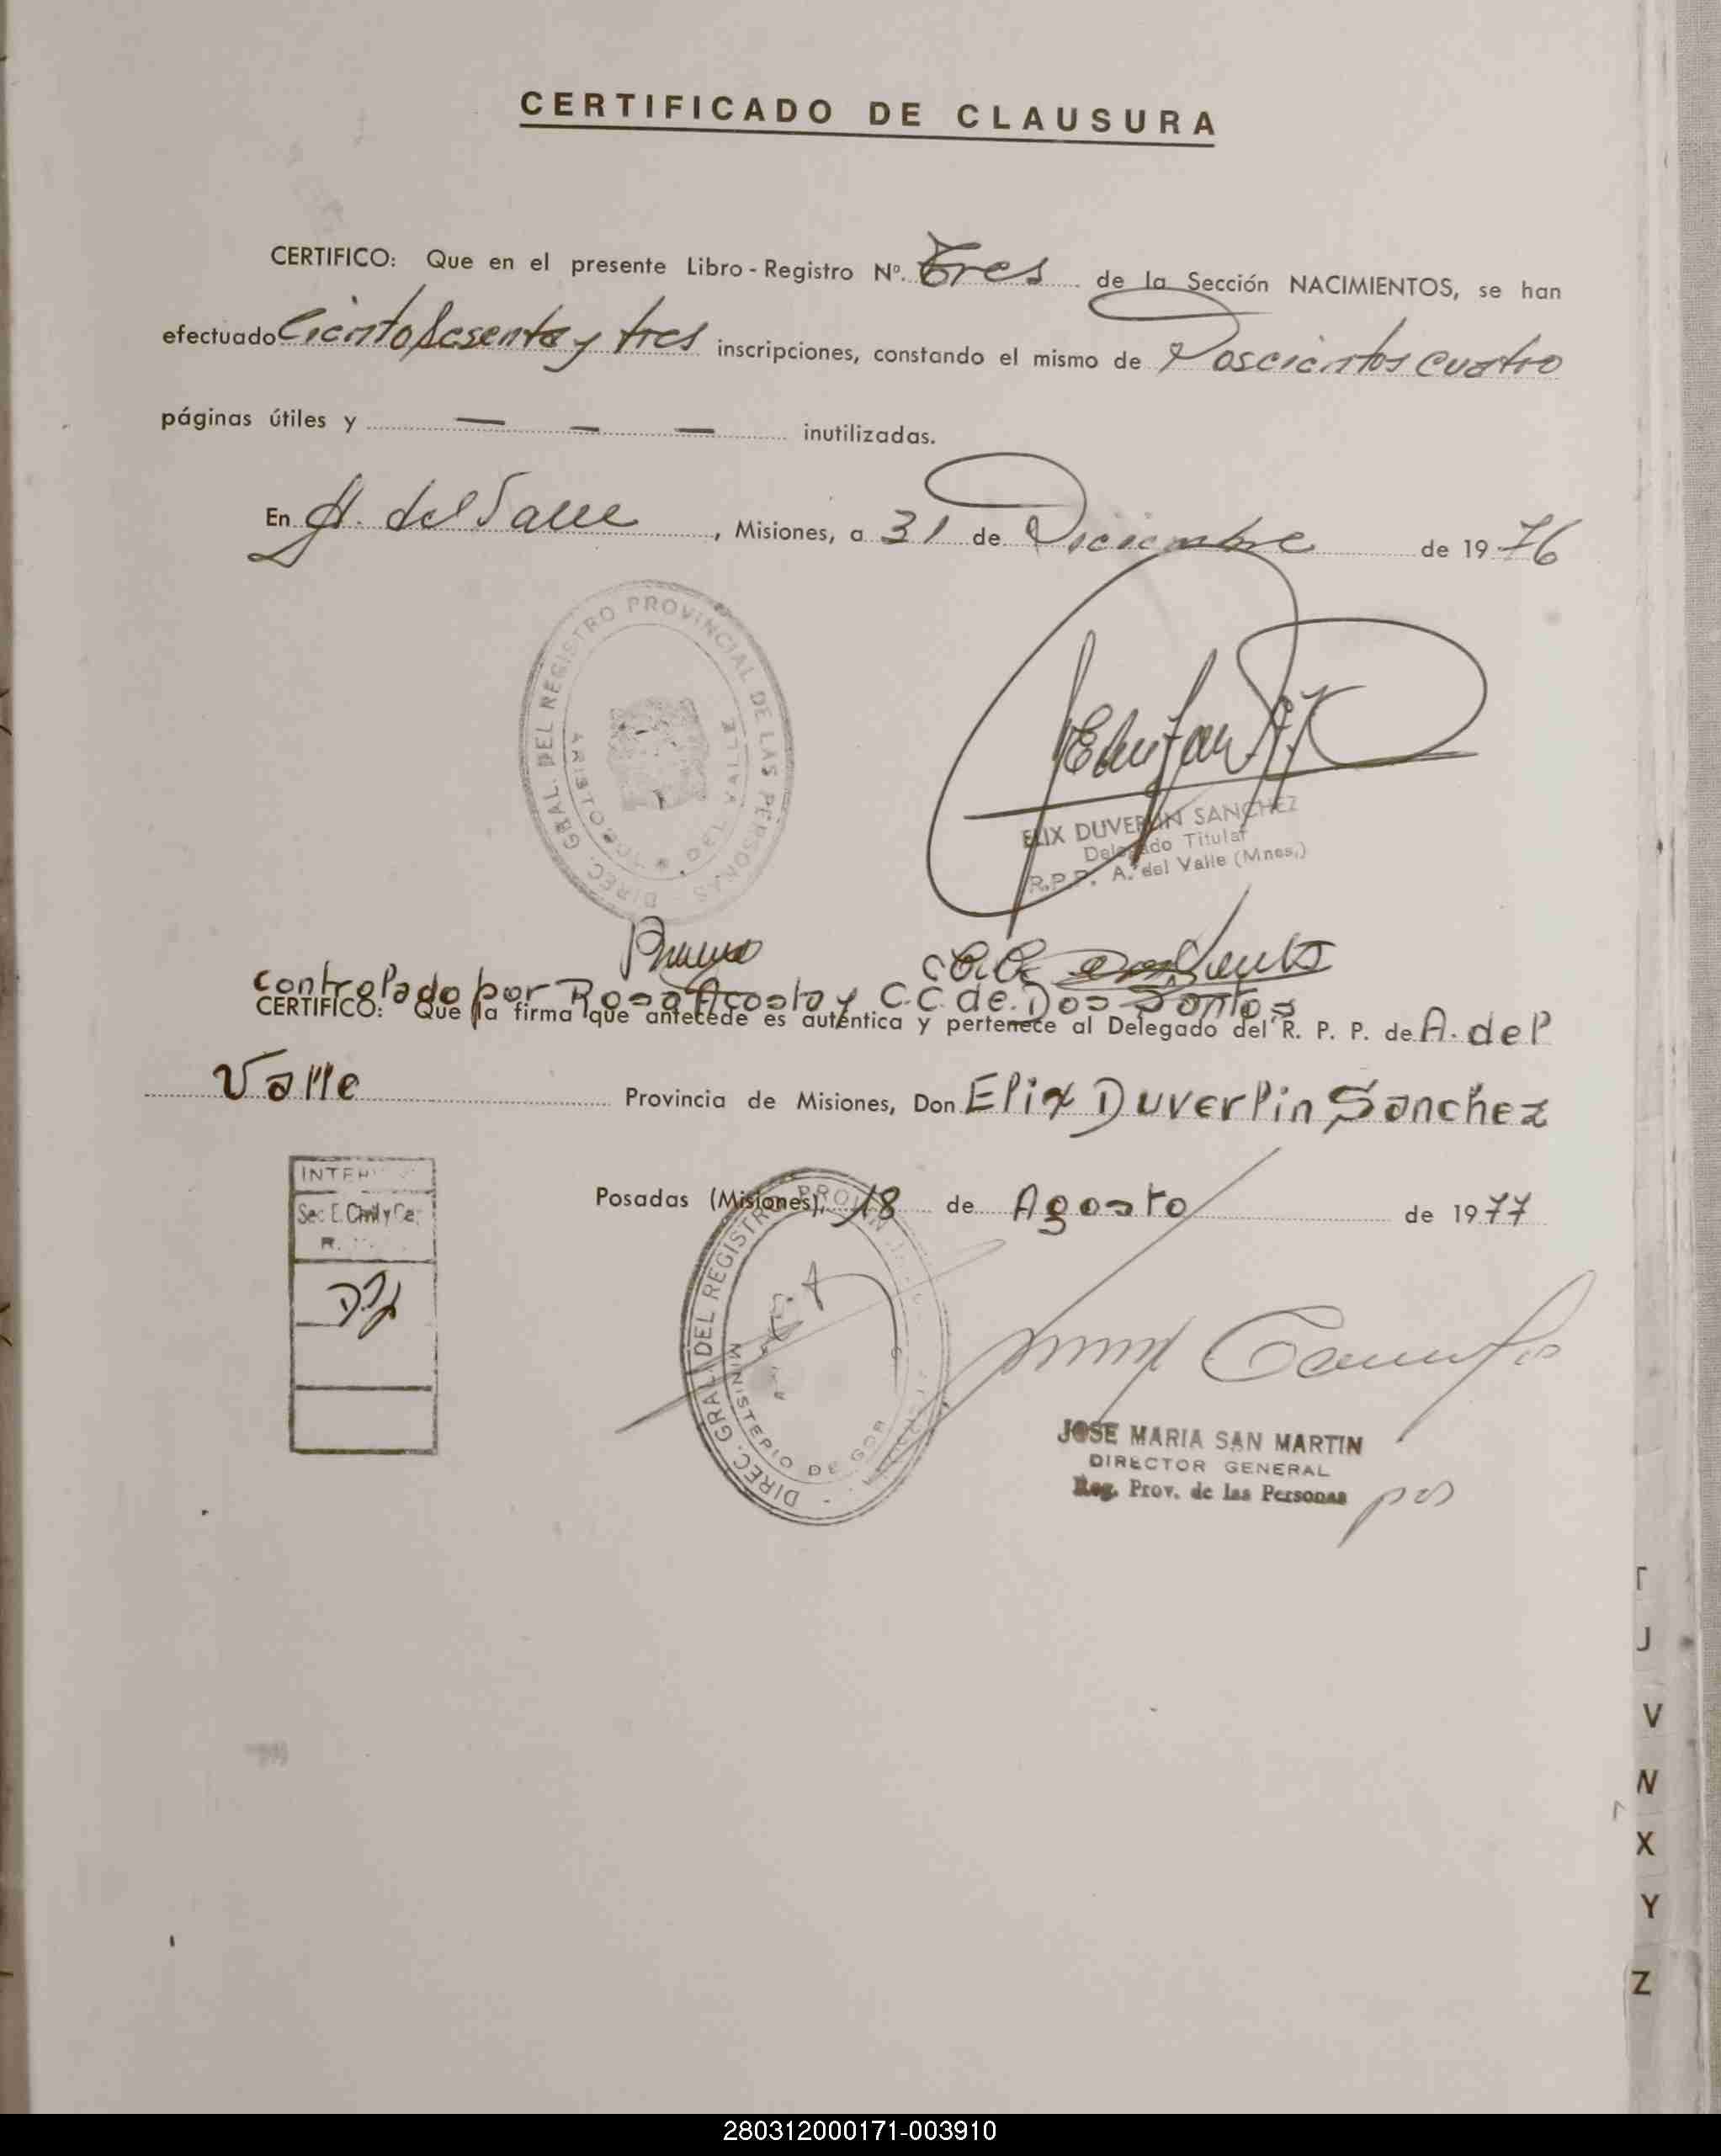 CERTIFICADO DE CLAUSURA
CERTIFICO: Que en el presente Libro-Registro Nº. Tres de la Sección NACIMIENTOS, se han
efectuado Ciento sesenta y tres inscripciones, constando el mismo de Doscientos cuatro
páginas útiles y — — — inutilizadas.
En A. del Valle, Misiones, a 31 de Diciembre de 1976
DIREC. GRAL. DEL REGISTRO PROVINCIAL DE LAS PERSONAS
ARISTOBULO DEL VALLE
ELIX DUVERLIN SANCHEZ
Delegado Titular
R.P.P. A. del Valle (Mnes.)
Controlado por Rosa Acosta y C.C. de Dos Santos
CERTIFICO: Que la firma que antecede es auténtica y pertenece al Delegado del R. P. P. de A. del
Valle Provincia de Misiones, Don Elix Duverlin Sanchez
Posadas (Misiones), 18 de Agosto de 1977
Sec. E. Civil y Ca
R.
DIREC. GRAL. DEL REGISTRO
MINISTERIO DE GOB
JOSE MARIA SAN MARTIN
DIRECTOR GENERAL
Reg. Prov. de las Personas
J
V
N
X
Y
Z
280312000171-003910